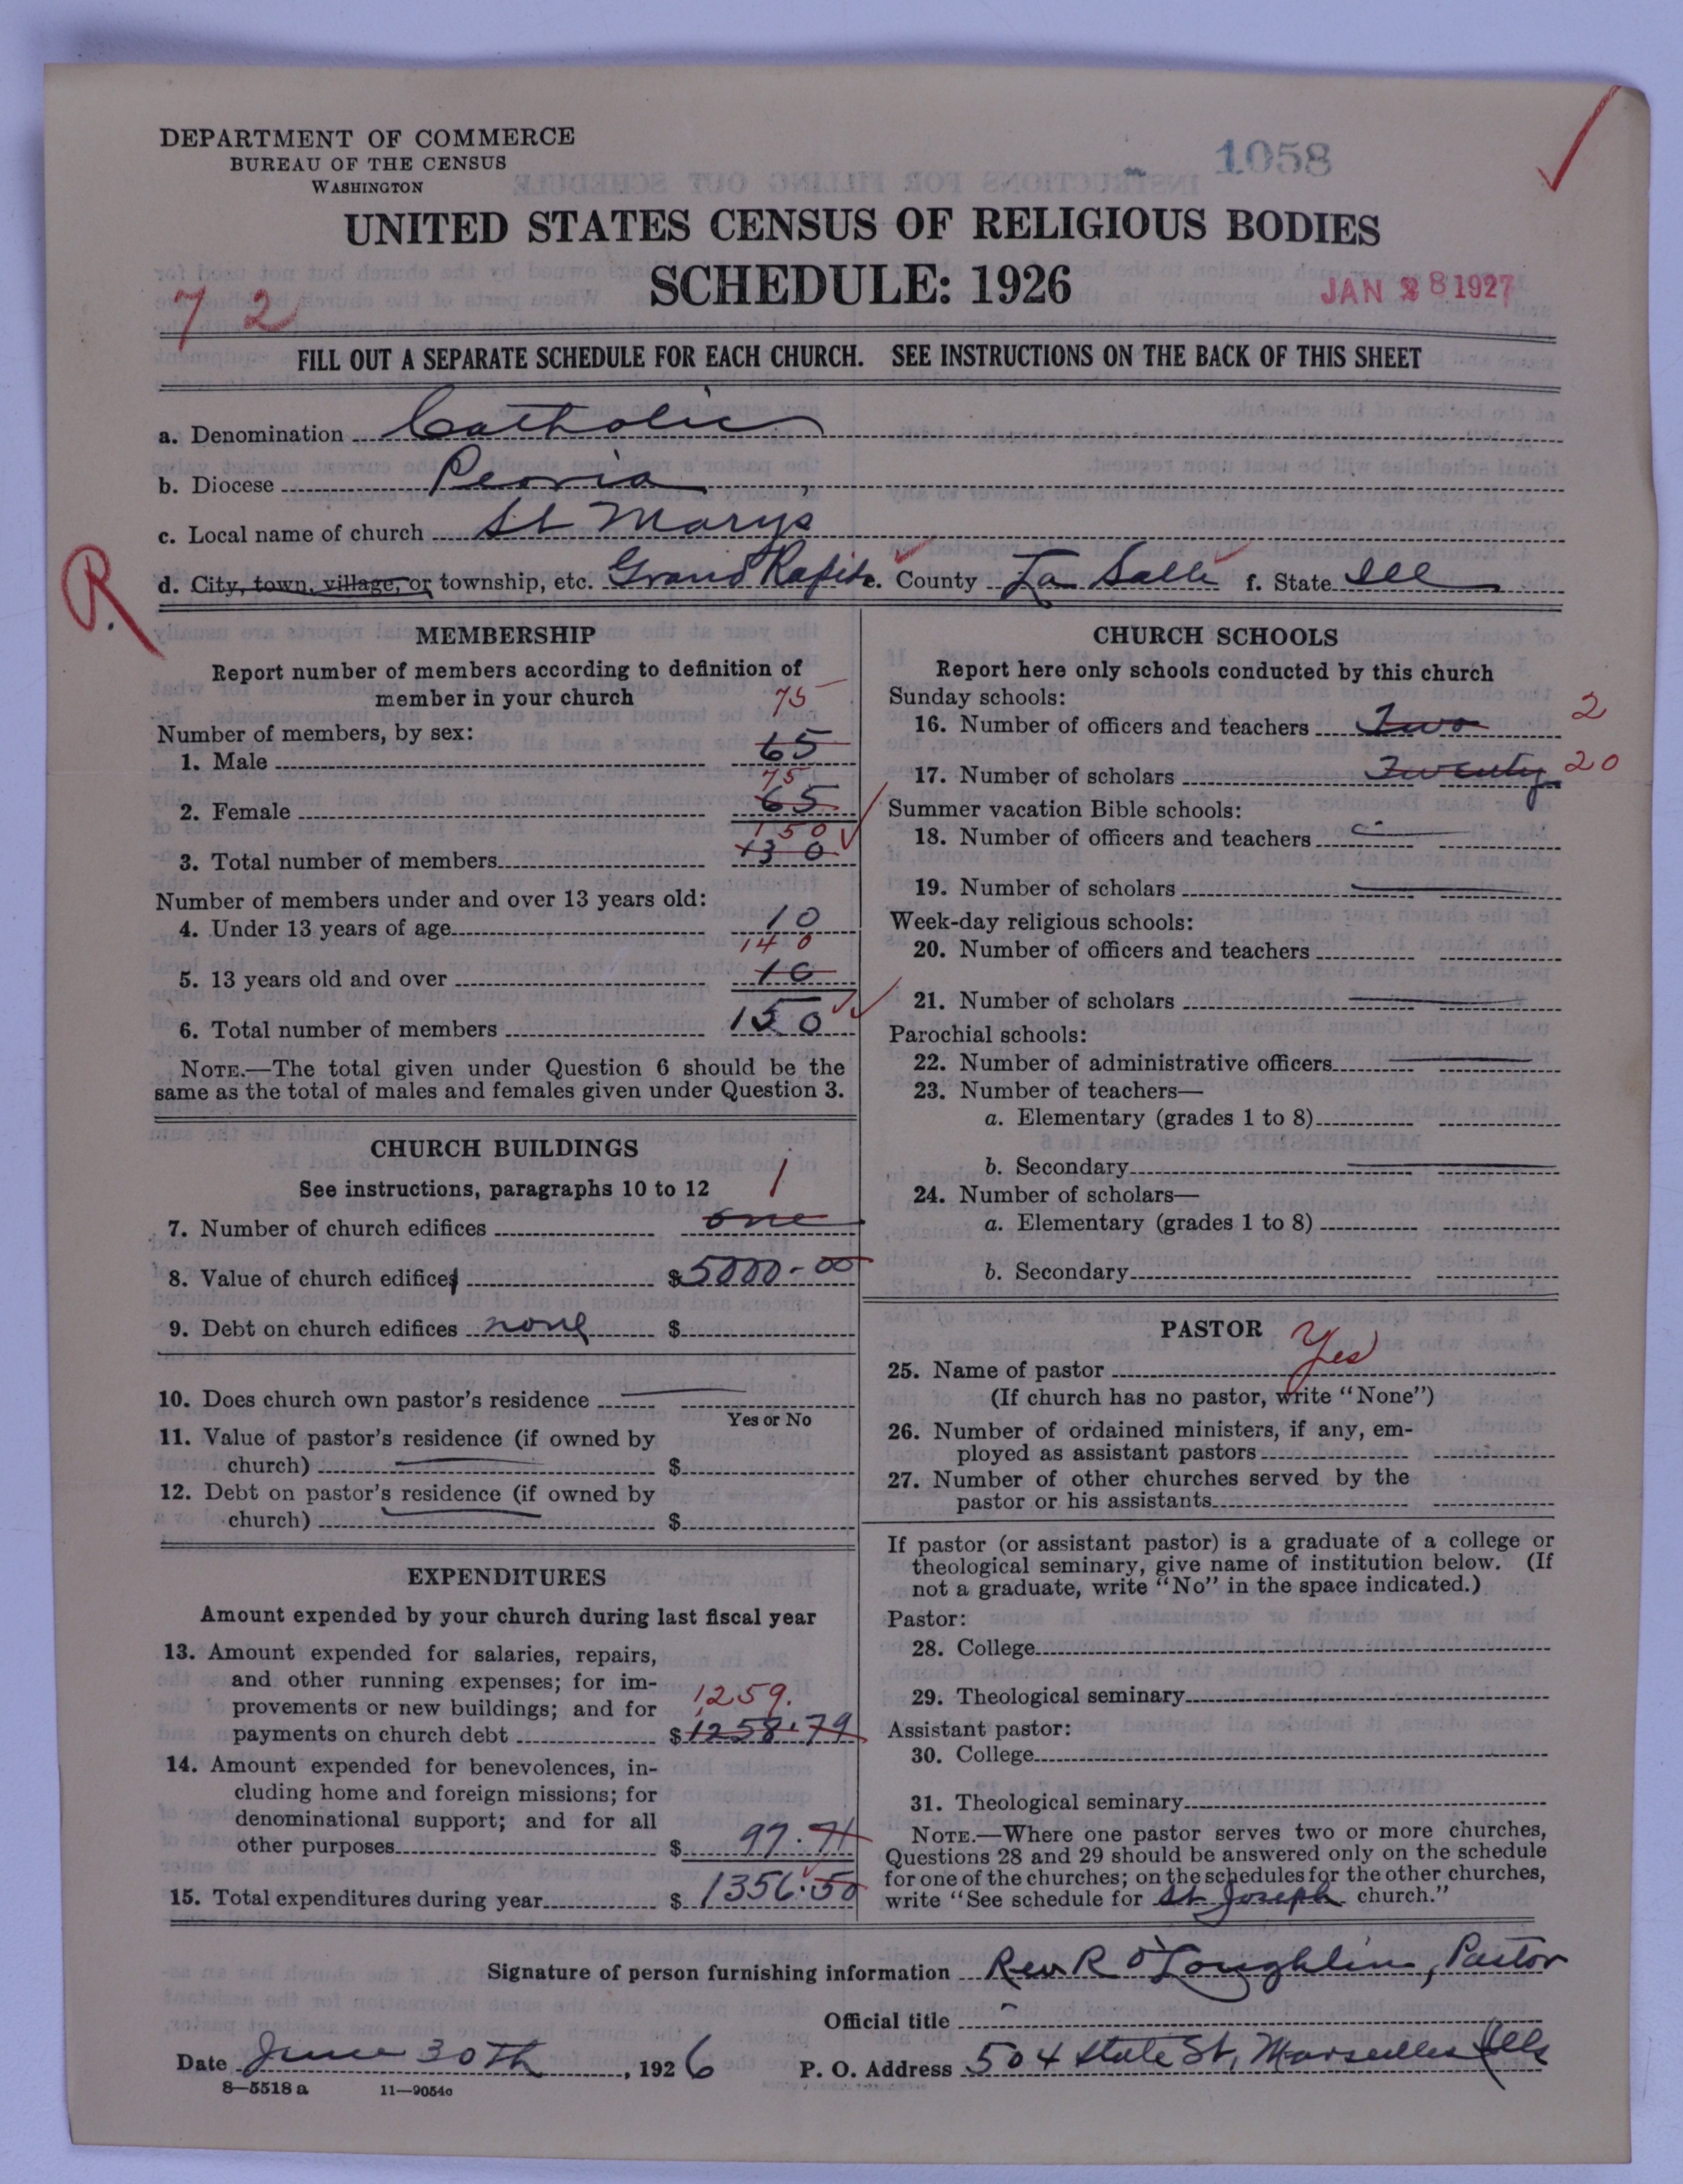 DEPARTMENT OF COMMERCE
BUREAU OF THE CENSUS
WASHINGTON
1058
UNITED STATES CENSUS OF RELIGIOUS BODIES
SCHEDULE: 1926
7 2
JAN 28 1927
FILL OUT A SEPARATE SCHEDULE FOR EACH CHURCH. SEE INSTRUCTIONS ON THE BACK OF THIS SHEET
a. Denomination Catholic
b. Diocese Peoria
c. Local name of church St Marys
R.
d. City, town, village, or township, etc. Grand Rapids e. County La Salle f. State Ill
MEMBERSHIP
Report number of members according to definition of
member in your church
75
Number of members, by sex:
1. Male 65
75
2. Female 65
150
3. Total number of members 130
Number of members under and over 13 years old:
4. Under 13 years of age 10
140
5. 13 years old and over 10
6. Total number of members 150
NOTE.—The total given under Question 6 should be the
same as the total of males and females given under Question 3.
CHURCH BUILDINGS
See instructions, paragraphs 10 to 12 1
7. Number of church edifices one
8. Value of church edifices $5000-00
9. Debt on church edifices none $
10. Does church own pastor's residence
Yes or No
11. Value of pastor's residence (if owned by
church) $
12. Debt on pastor's residence (if owned by
church) $
EXPENDITURES
Amount expended by your church during last fiscal year
13. Amount expended for salaries, repairs,
and other running expenses; for im-
provements or new buildings; and for 1259.
payments on church debt $1258.79
14. Amount expended for benevolences, in-
cluding home and foreign missions; for
denominational support; and for all
other purposes $ 97.71
15. Total expenditures during year $ 1356.50
CHURCH SCHOOLS
Report here only schools conducted by this church
Sunday schools:
16. Number of officers and teachers Two 2
17. Number of scholars Twenty 20
Summer vacation Bible schools:
18. Number of officers and teachers
19. Number of scholars
Week-day religious schools:
20. Number of officers and teachers
21. Number of scholars
Parochial schools:
22. Number of administrative officers
23. Number of teachers—
a. Elementary (grades 1 to 8)
b. Secondary
24. Number of scholars—
a. Elementary (grades 1 to 8)
b. Secondary
PASTOR
25. Name of pastor Yes
(If church has no pastor, write "None")
26. Number of ordained ministers, if any, em-
ployed as assistant pastors
27. Number of other churches served by the
pastor or his assistants
If pastor (or assistant pastor) is a graduate of a college or
theological seminary, give name of institution below. (If
not a graduate, write "No" in the space indicated.)
Pastor:
28. College
29. Theological seminary
Assistant pastor:
30. College
31. Theological seminary
NOTE.—Where one pastor serves two or more churches,
Questions 28 and 29 should be answered only on the schedule
for one of the churches; on the schedules for the other churches,
write "See schedule for St Joseph church."
Signature of person furnishing information Rev R O'Loughlin, Pastor
Official title
Date June 30th, 1926 P. O. Address 504 State St, Marseilles Ills
8—5518 a 11—9054c